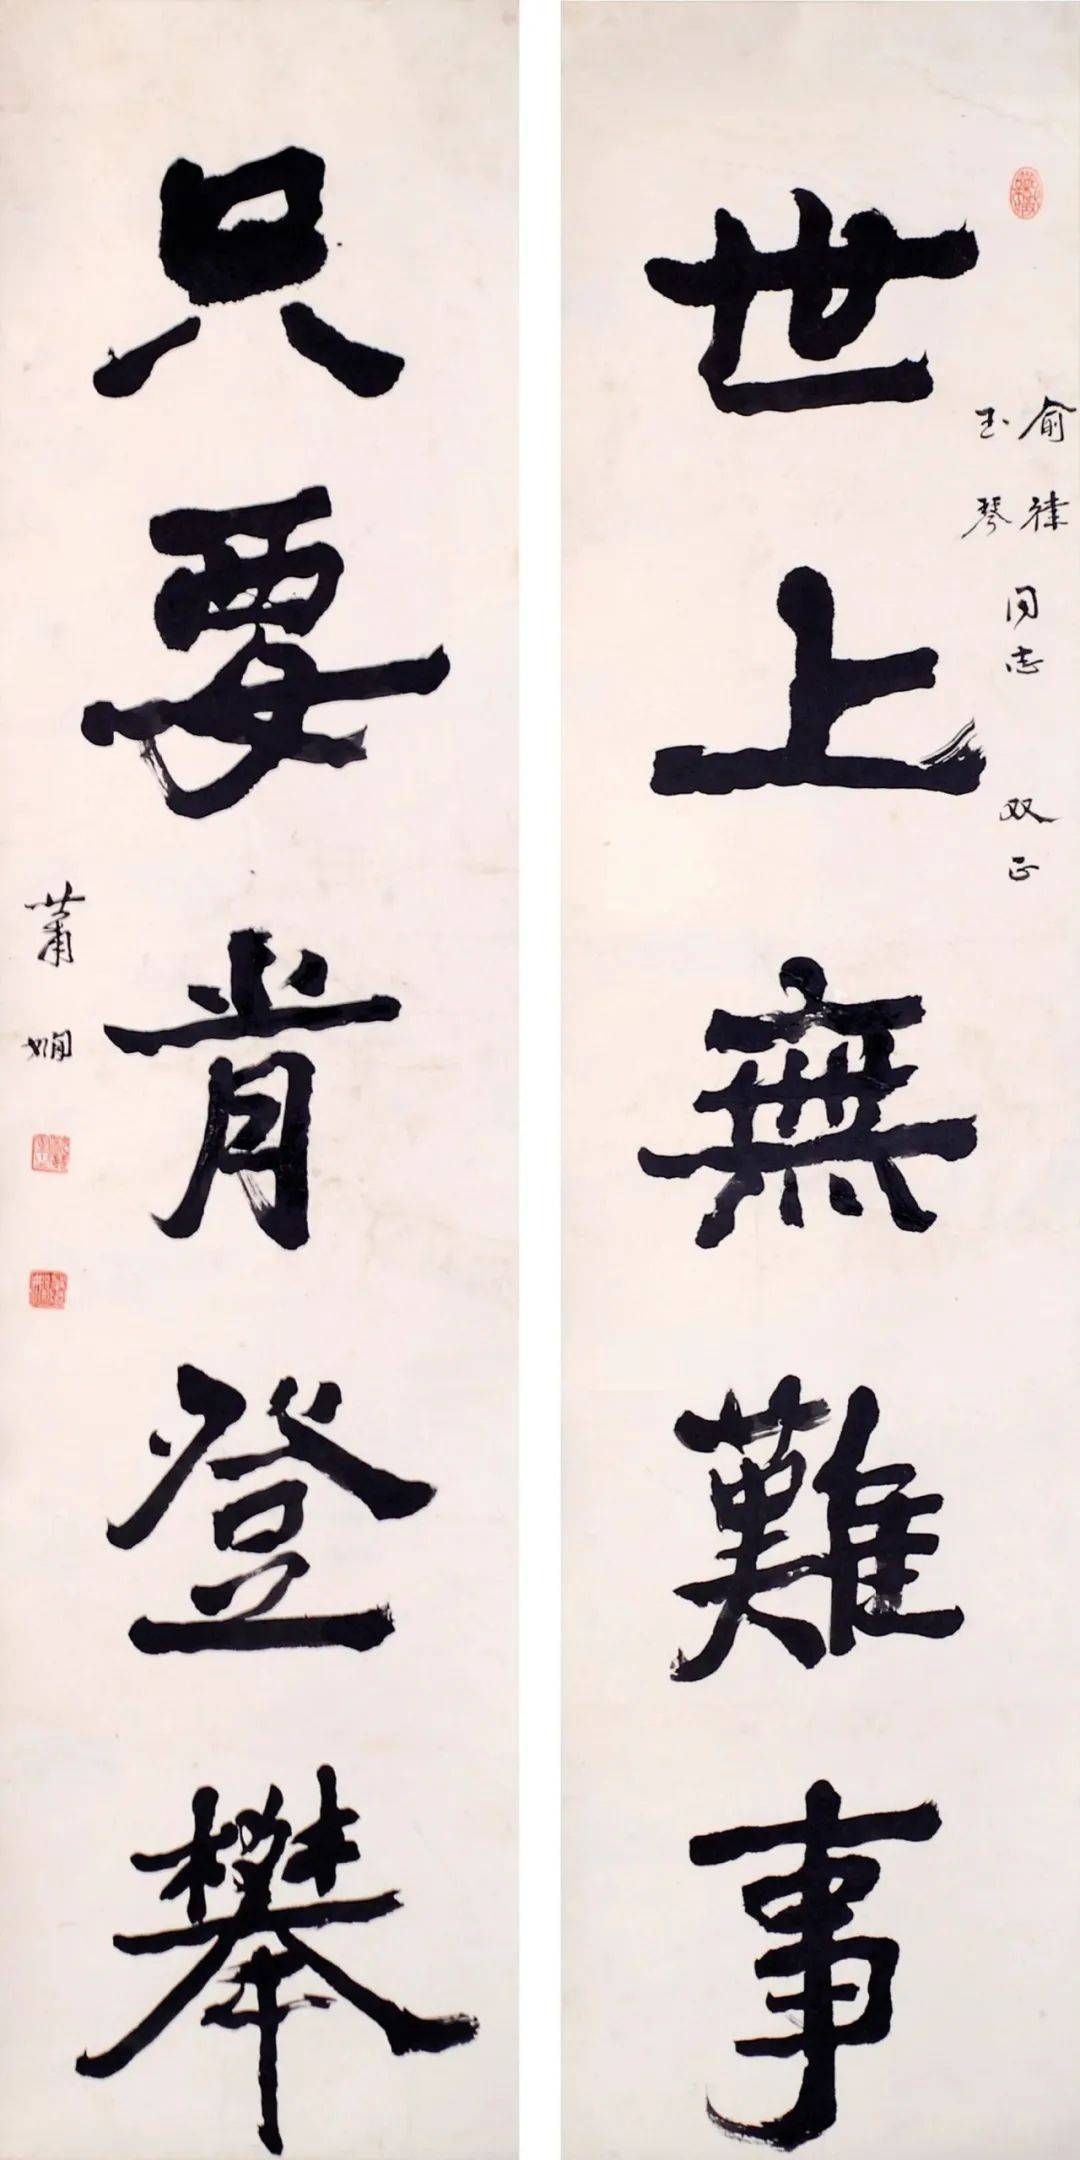 世上無難事
俞律
玉琴
同志
双正
只要肯登攀
蕭嫻